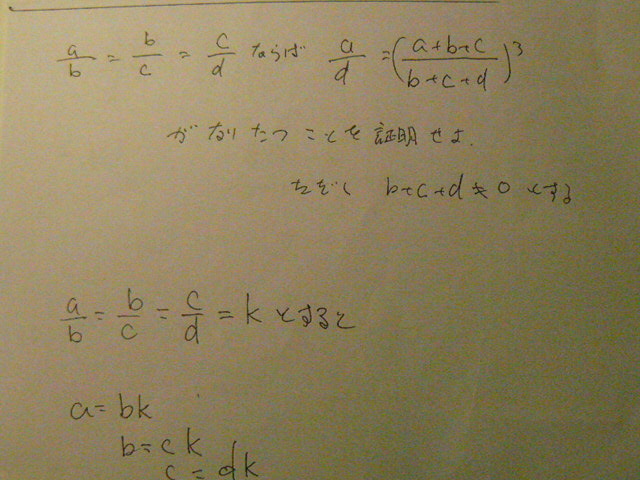 a/b = b/c = c/d ならば a/d = ((a+b+c)/(b+c+d))^3
がなりたつことを証明せよ.
ただし b+c+d≠0 とする
a/b = b/c = c/d = k とすると
a = bk
b = ck
c = dk